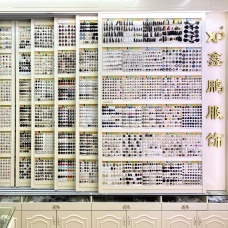 XP
鑫
鹏
服
饰